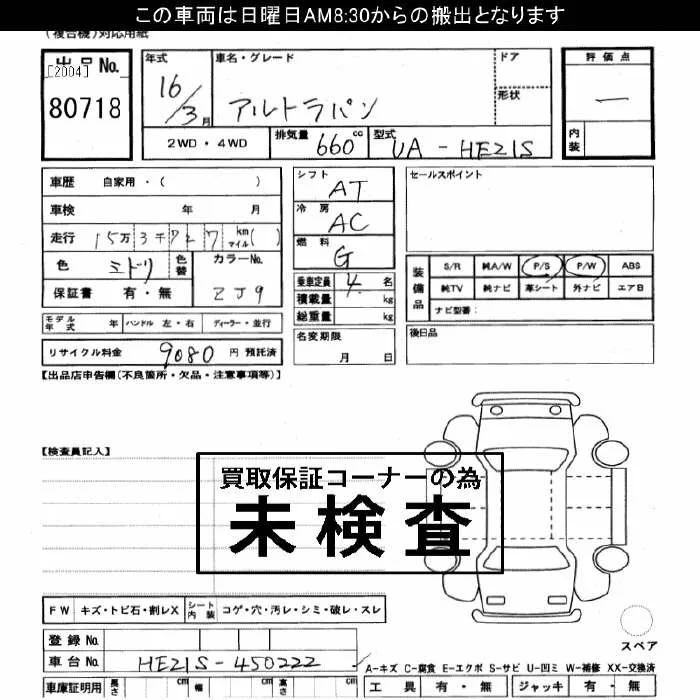 この車両は日曜日AM8:30からの搬出となります
(複合機)対応用紙
出品No.
[2004]
80718
年式
16/3月
車名・グレード
アルトラパン
ドア
形状
評価点
—
内装
2WD・4WD
排気量 660 cc
型式 UA-HE21S
車歴 自家用・( )
車検 年 月
走行 15万3千727 km マイル( )
色 ミドリ 色替
カラーNo. ZJ9
保証書 有・無
シフト AT
冷房 AC
燃料 G
乗車定員 4 名
積載量 kg
総重量 kg
セールスポイント
装備品
S/R 純A/W P/S P/W ABS
純TV 純ナビ 革シート 外ナビ エアB
ナビ型番:
モデル年式 年 ハンドル 左・右 ディーラー・並行
リサイクル料金 9080 円 預託済
名変期限
月 日
後日品
【出品店申告欄(不良箇所・欠品・注意事項等)】
【検査員記入】
買取保証コーナーの為
未検査
FW キズ・トビ石・割レX シート内装 コゲ・穴・汚レ・シミ・破レ・スレ
スペア
登録No.
車台No. HE21S-450222
A-キズ C-腐食 E-エクボ S-サビ U-凹ミ W-補修 XX-交換済
車庫証明用 長さ cm 幅 cm 高さ cm
工具 有・無 ジャッキ 有・無